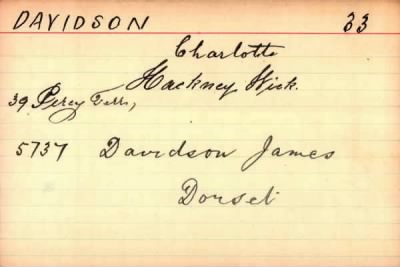 DAVIDSON 33
Charlotte
Hackney Wick.
39 Percy Terr,
5737 Davidson James
Dorset